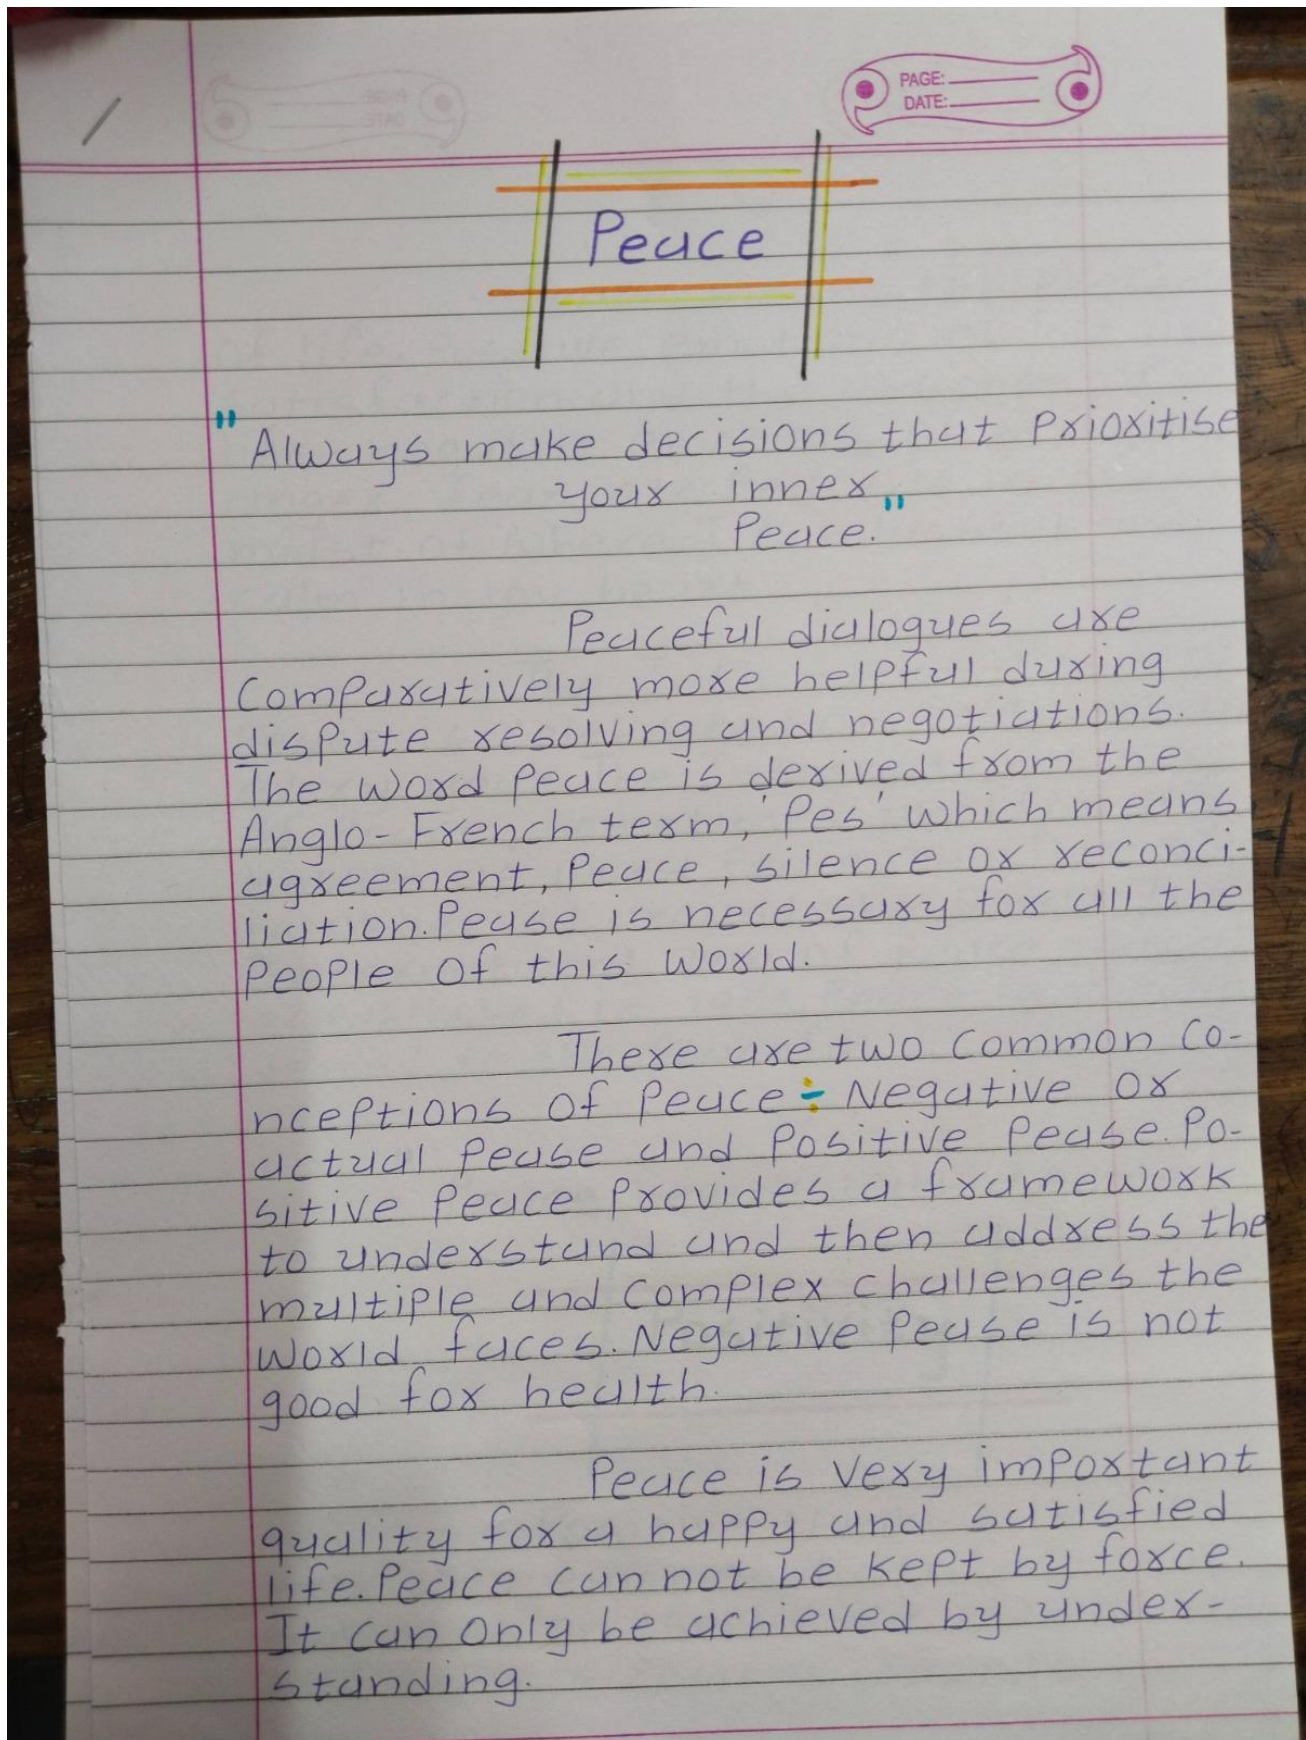 PAGE:
DATE:
Peace
"Always make decisions that Prioritise
your inner
Peace."
Peaceful dialogues are
Comparatively more helpful during
dispute resolving and negotiations.
The Word Peace is derived from the
Anglo-French term, 'Pes' Which means
agreement, Peace, silence or reconci-
liation. Pease is necessary for all the
People Of this World.
There are two Common Co-
nceptions Of Peace÷ Negative Or
actual Pease and Positive Pease. Po-
sitive Peace Provides a framework
to understand and then address the
multiple and Complex Challenges the
World faces. Negative Pease is not
good for health.
Peace is Very important
quality for a happy and satisfied
life. Peace Can not be kept by force.
It Can Only be achieved by under-
standing.